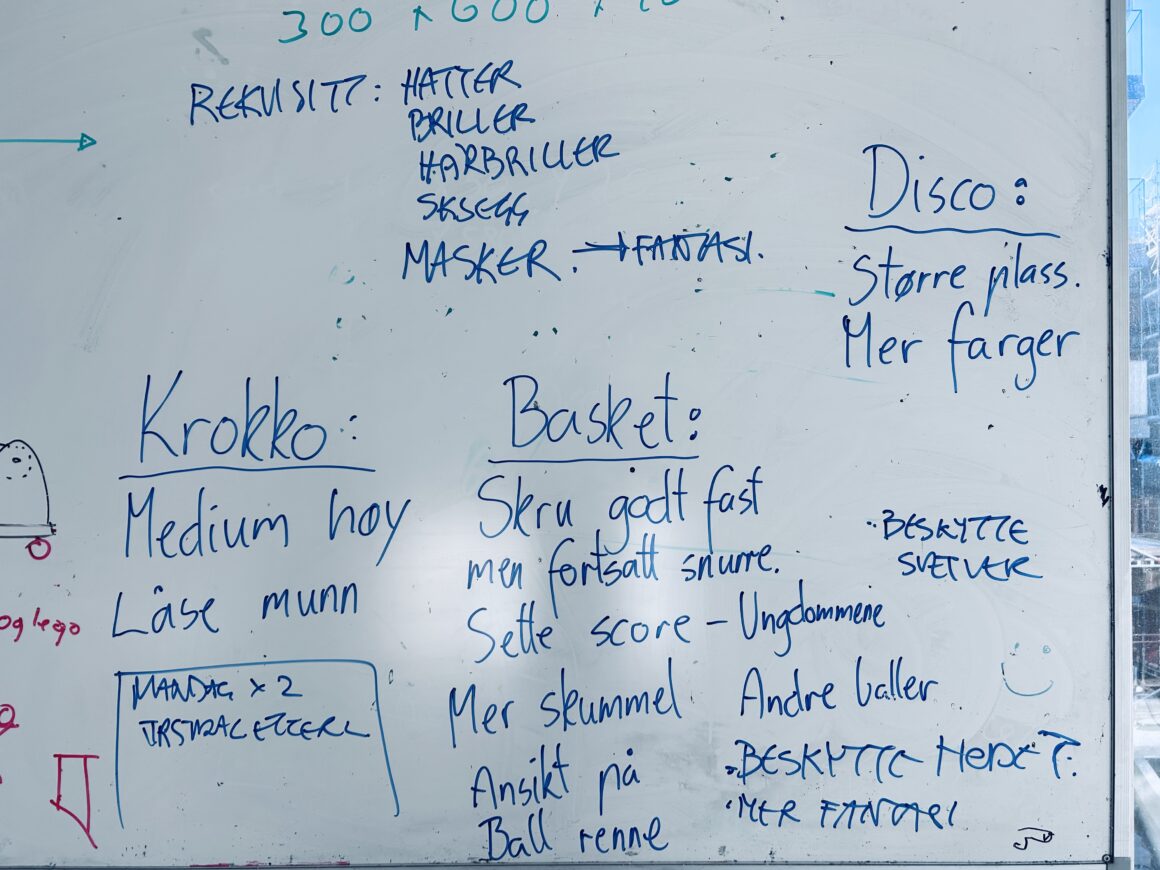 300 x 600 x
REKVISITT: HATTER
BRILLER
HÅRBRILLER
SKJEGG
MASKER. → FANTASI.
Disco:
Større plass.
Mer farger
Krokko:
Medium høy
Låse munn
og lego
MANDAG x 2
Basket:
Skru godt fast
men fortsatt snurre.
Sette score – Ungdommene
Mer skummel
Ansikt på
Ball renne
Andre baller
• BESKYTTE
• MER FANTASI
• BESKYTTE